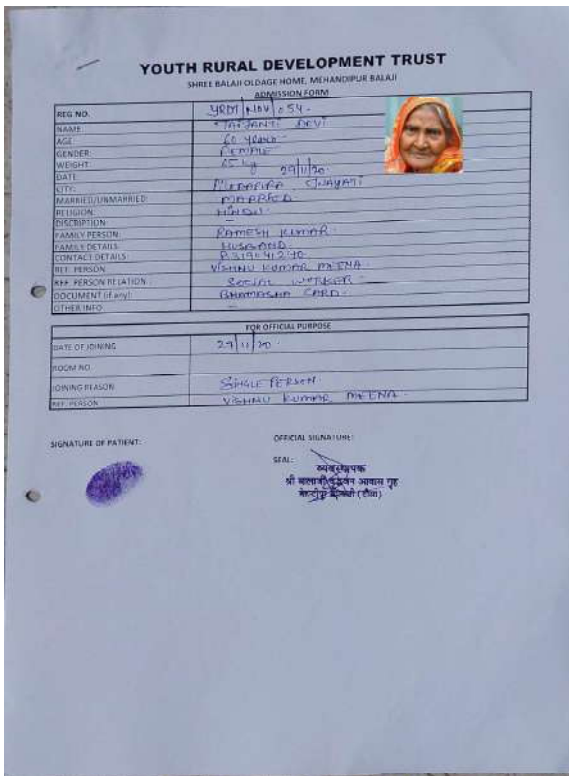 YOUTH RURAL DEVELOPMENT TRUST
SHREE BALAJI OLDAGE HOME, MEHANDIPUR BALAJI
ADMISSION FORM
REG NO. YRDT/NOV/054.
NAME DEVI
AGE 60 years
GENDER FEMALE
WEIGHT: 65 kg
DATE 29/11/20.
CITY:
MARRIED/UNMARRIED: MARRIED.
RELIGION: HINDU.
DISCRIPTION: —
FAMILY PERSON: RAMESH KUMAR.
FAMILY DETAILS: HUSBAND.
CONTACT DETAILS:
REF. PERSON VISHNU KUMAR MEENA.
REF. PERSON RELATION SOCIAL WORKER
DOCUMENT (if any): BHAMASHA CARD.
OTHER INFO —
FOR OFFICIAL PURPOSE
DATE OF JOINING 29/11/20.
ROOM NO
JOINING REASON SINGLE PERSON.
REF. PERSON VISHNU KUMAR MEENA.
SIGNATURE OF PATIENT:
OFFICIAL SIGNATURE:
SEAL:
व्यवस्थापक
श्री बालाजी आवास गृह